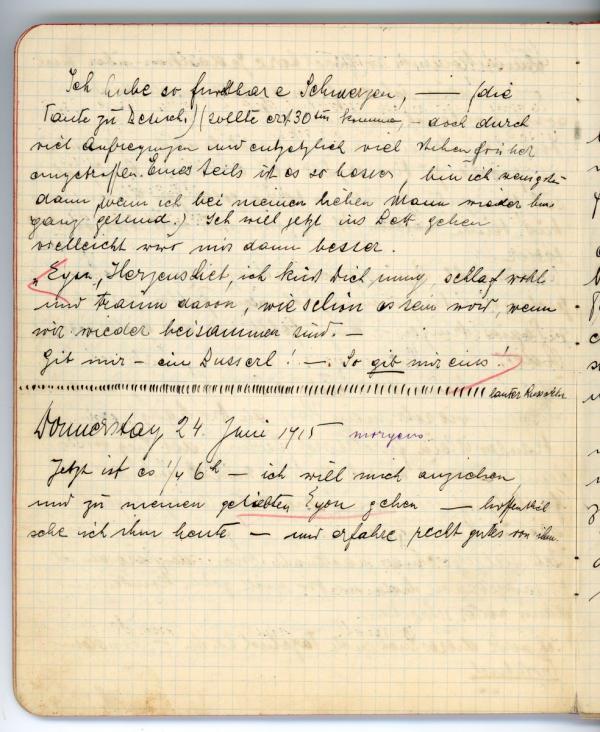 Ich habe so furchtbare Schmerzen, — (die
Tante zu Besuch) (sollte erst 30ten kommen, – doch durch
viel Aufregungen und entsetzlich viel stehen früher
eingetroffen. Einesteils ist es so besser, bin ich wenigstens
dann, wenn ich bei meinen lieben Mann wieder bin
ganz gesund.) Ich will jetzt ins Bett gehen
vielleicht wird mir dann besser.
„Egon, Herzenslieb, ich küss Dich innig, schlaf wohl
und träum davon, wie schön es sein wird, wenn
wir wieder beisammen sind. –
Gib mir – ein Busserl! –. So gib mir eins!
lauter Busserln
Donnerstag 24 Juni 1915 morgens.
Jetzt ist es 1/4 6h — ich will mich anziehen
und zu meinen geliebten Egon gehen — hoffentlich
sehe ich ihn heute – und erfahre recht gutes von ihm